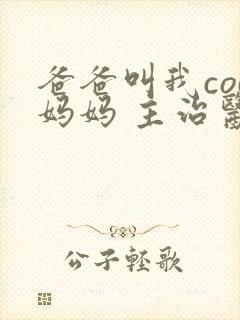 爸爸叫我co
妈妈 主治
公子轻歌